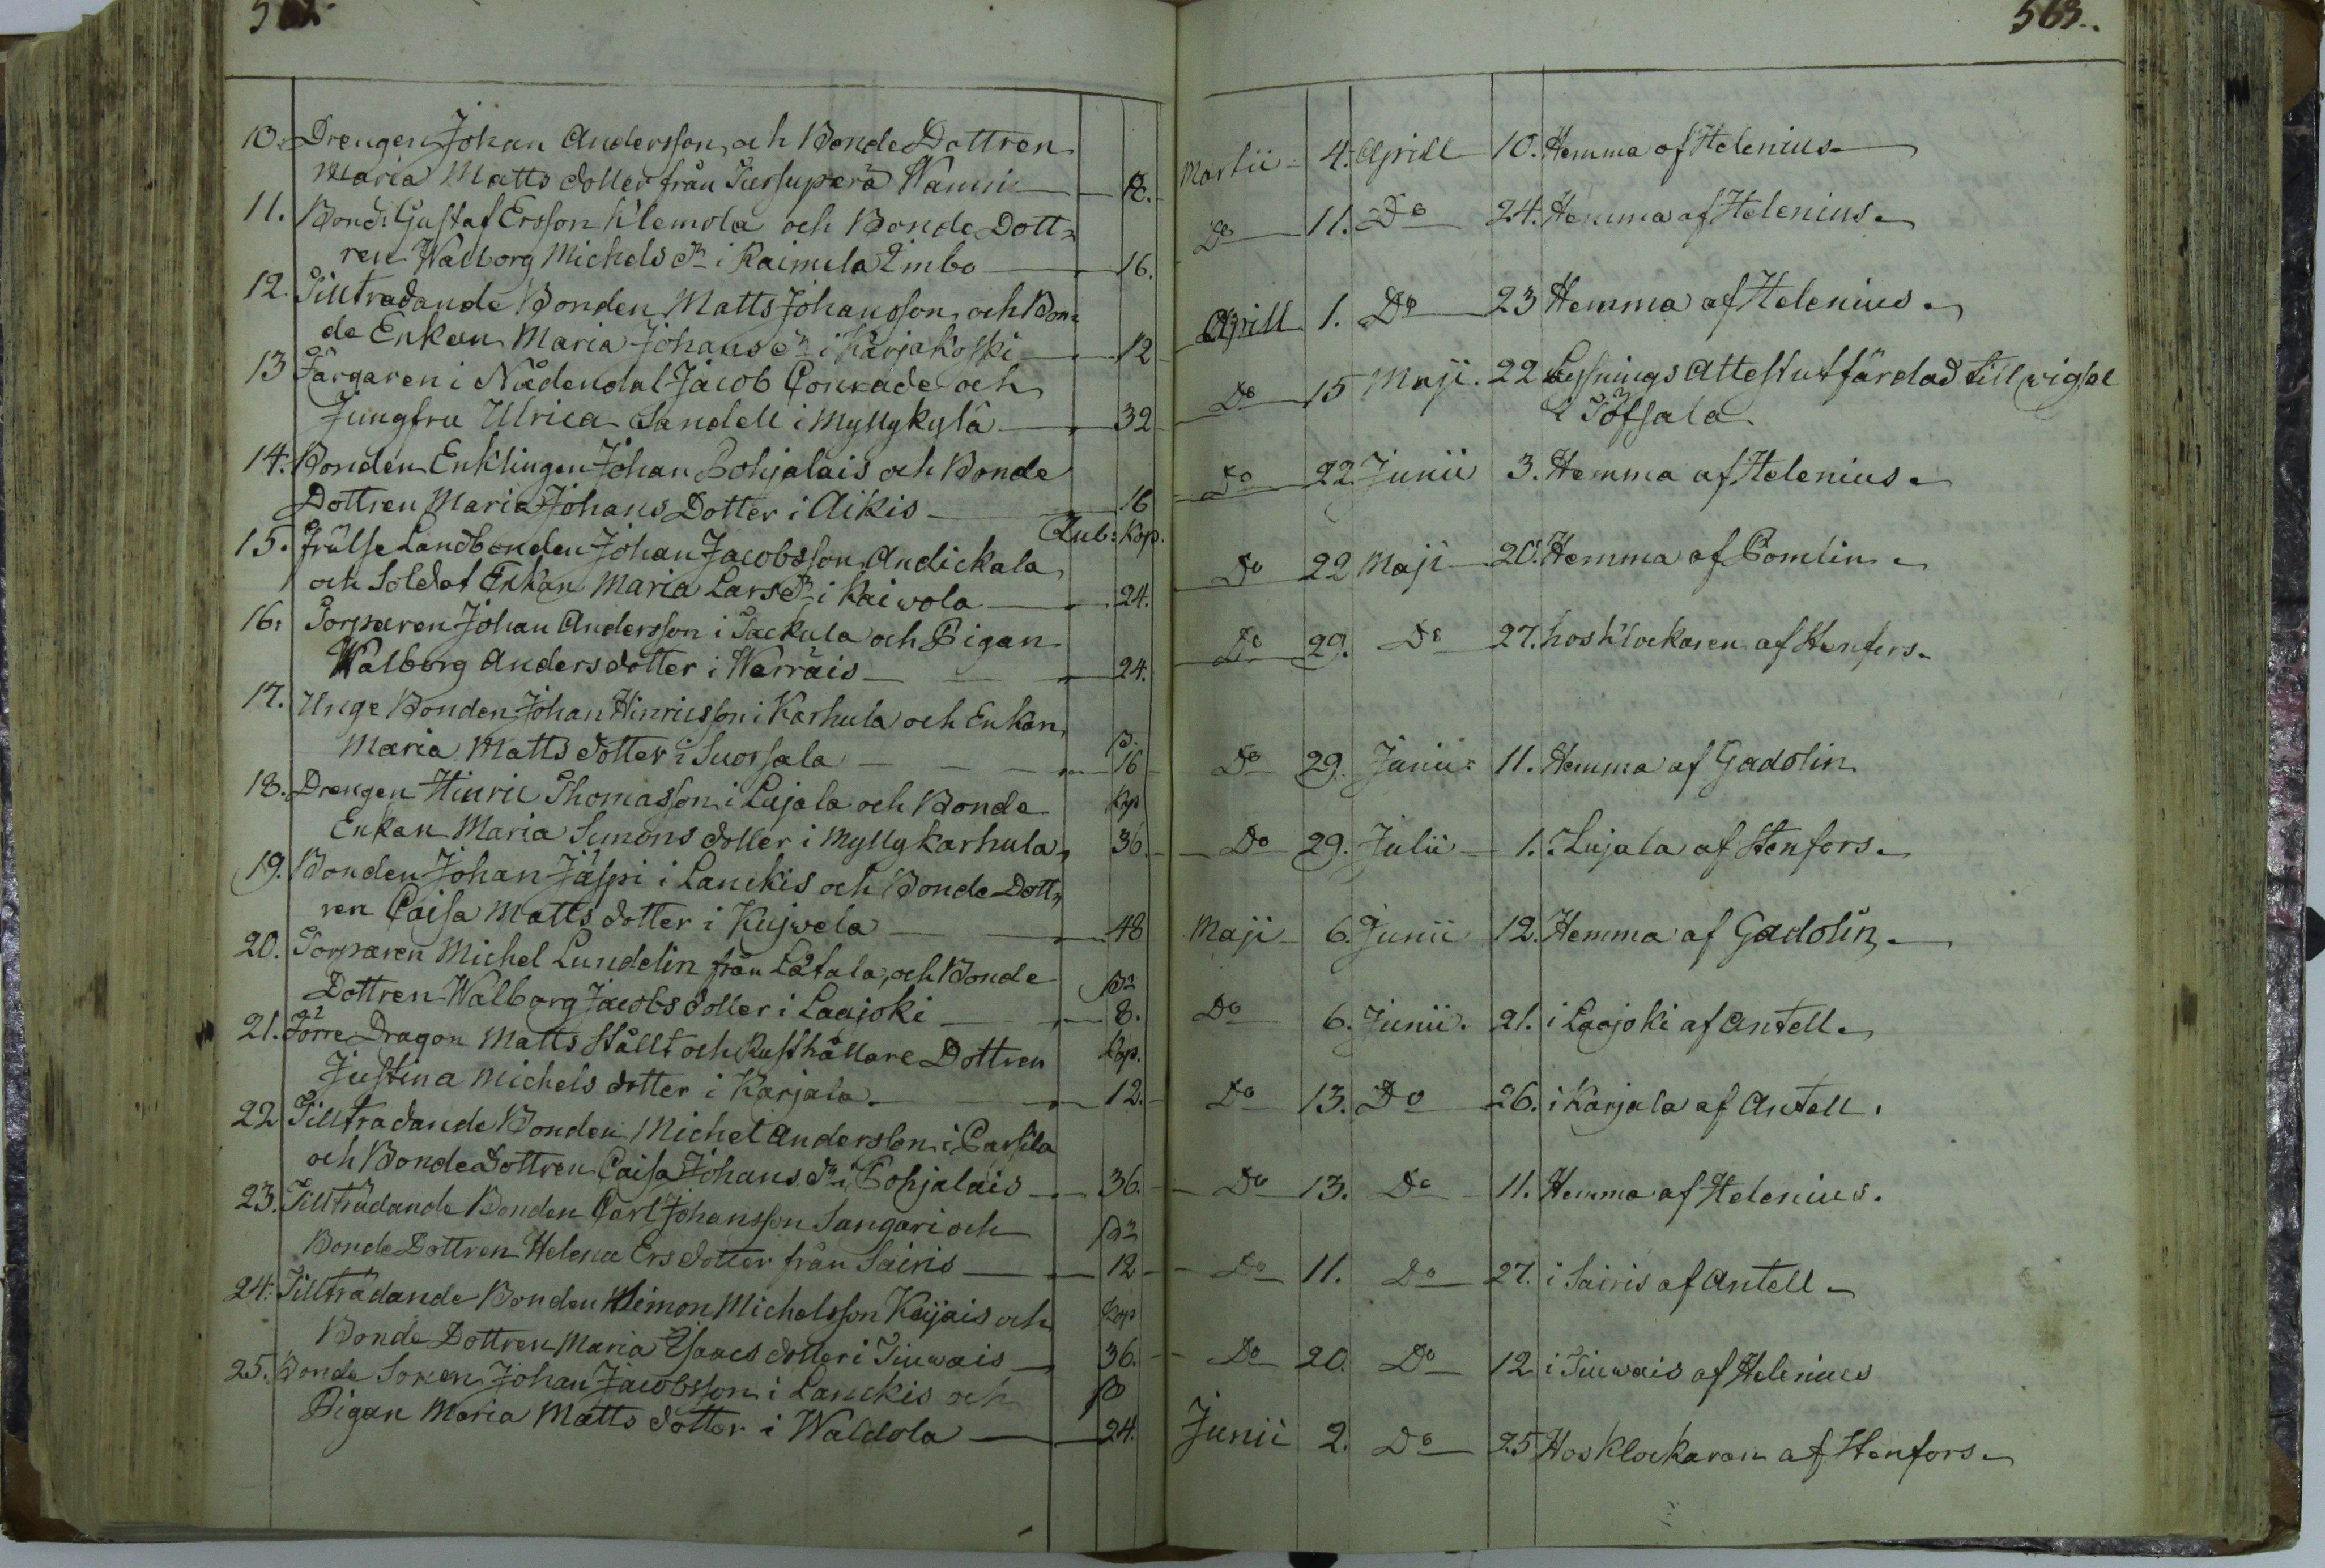 562.
10. Drengen Johan Andersson, och Bonde Dottren
Maria Matts dotter från Tursuperä Wanni — 8.
11. Bond: Gustaf Ersson Klemola och Bonde Dott-
ren Walborg Michels dr i Raimela Simbo — 16.
12. Tillträdande Bonden Matts Johansson, och Bon-
de Enkan Maria Johans dr i Karjakoski — 12
13 Färgaren i Nådendal Jacob Conrade och
Jungfru Ulrica Sandell i Myllykylä — 32
14. Bonden Enklingen Johan Pohjalais och Bonde
Dottren Maria Johans Dotter i Aikis — 16
Rub: Kop.
15. Frälse Landbonden Johan Jacobsson Andickala
och Soldat Enkan Maria Lars dr i Kaivola — 24.
16. Torparen Johan Andersson i Tackula och Pigan
Walborg Anders dotter i Warrais — 24.
17. Unge Bonden Johan Hinricsson i Karhula och Enkan
Maria Matts dotter i Suorsala — 16
18. Drengen Hinric Thomasson i Lujala och Bonde Kop
Enkan Maria Simons dotter i Myllykarhula 36.
19. Bonden Johan Jäspi i Lanckis och Bonde Dott-
ren Caisa Matts dotter i Kujvela — 48
20. Torparen Michel Lundelin från Lätala, och Bonde
Dottren Walborg Jacobs dotter i Laajoki — 8.
21. Förre Dragon Matts Stållt och Rusthållare Dottren Kop.
Justina Michels dotter i Karjala — 12.
22 Tillträdande Bonden Michel Andersson i Parsila
och Bonde dottren Caisa Johans dr i Pohjalais — 36.
23. Tillträdande Bonden Carl Johansson Sangari och
Bonde Dottren Helena Ers dotter från Sairis — 12
24. Tillträdande Bonden Simon Michelsson Keijais och Kop
Bonde Dottren Maria Isaacs dotter i Tiuwais — 36.
25. Bonde Sonen Johan Jacobsson i Lanckis och
Pigan Maria Matts dotter i Waldola — 24.
563.
Martii 4. Aprill 10. Hemma af Helenius
Do 11. Do 24. Hemma af Helenius
Aprill 1. Do 23 Hemma af Helenius
Do 15 Maji. 22 Lysnings Attest utfärdad till wigsel
i Töfsala
Do 22. Junii 3. Hemma af Helenius
Do 22 Maji 20. Hemma af Pomlin
Do 29. Do 27. hos Klockaren af Stenfors
Do 29. Junii 11. Hemma af Gadolin
Do 29. Julii 1. i Lujala af Stenfors
Maji 6. Junii 12. Hemma af Gadolin
Do 6. Junii. 21. i Laajoki af Antell
Do 13. Do 26. i Karjala af Antell.
Do 13. Do 11. Hemma af Helenius.
Do 11. Do 27. i Sairis af Antell
Do 20. Do 12 i Tiuwais af Helenius
Junii 2. Do 25 Hos Klockaren af Stenfors